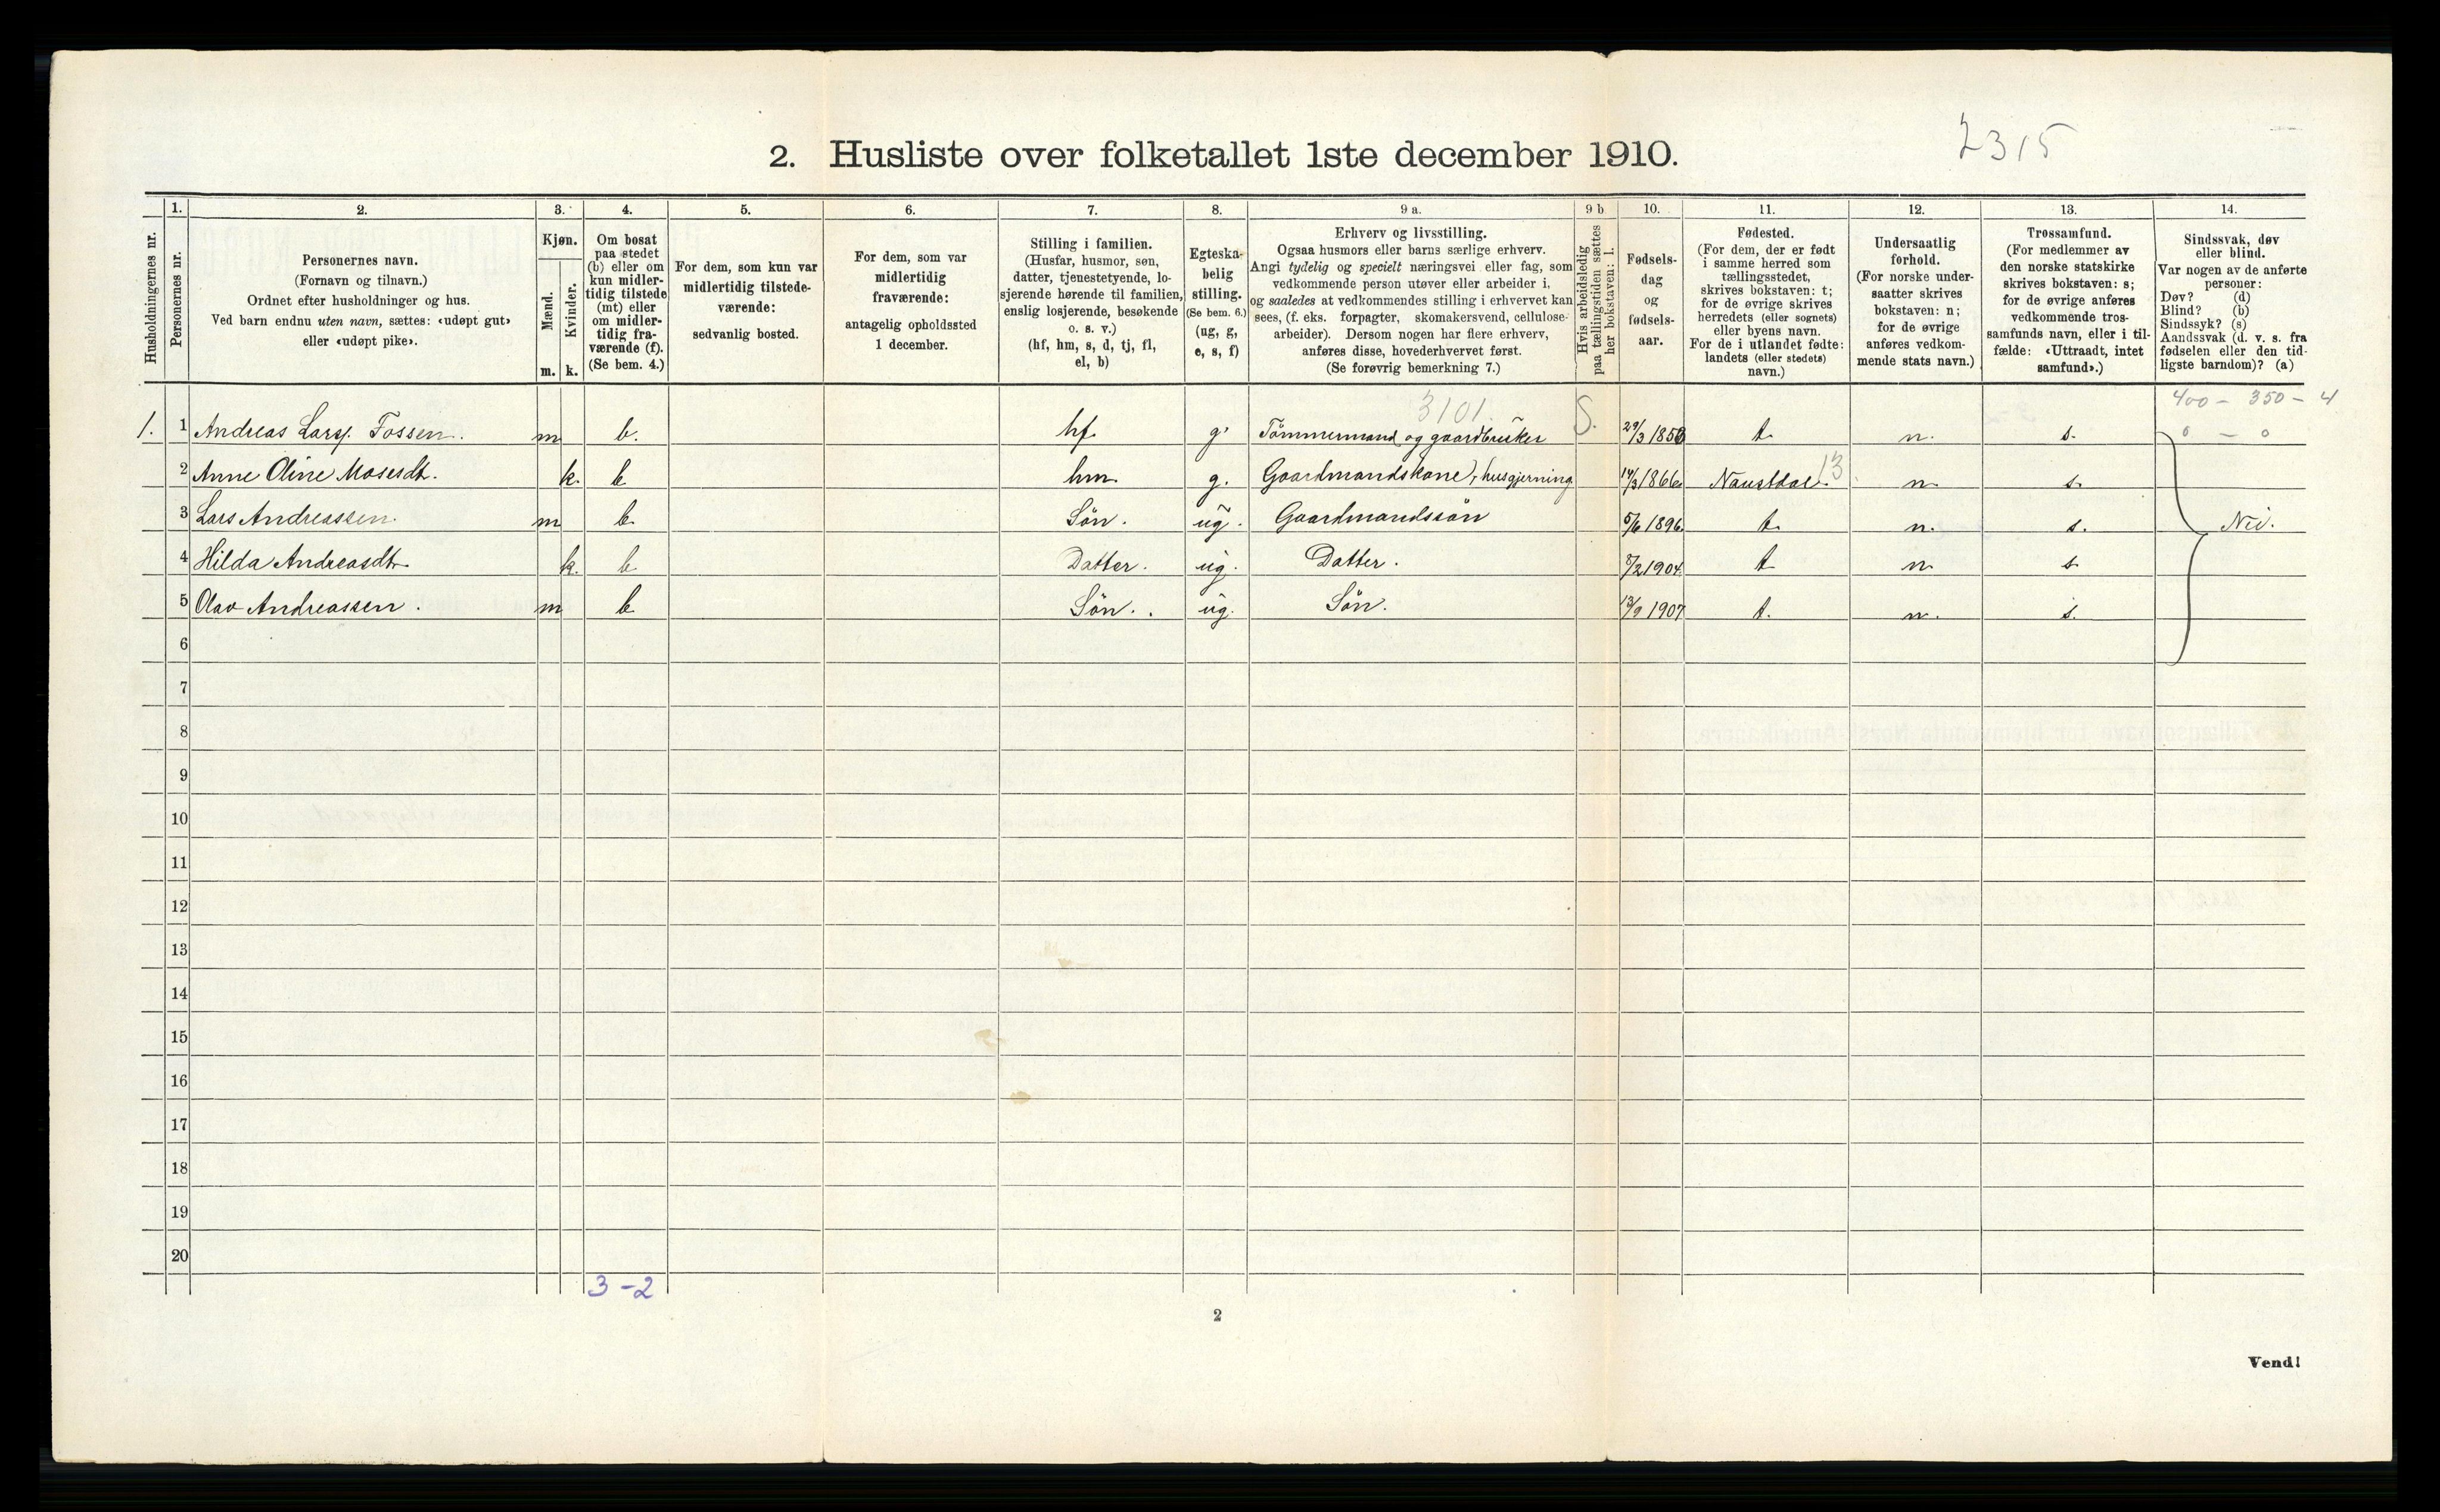 2315
2. Husliste over folketallet 1ste december 1910.
Husholdningernes nr.
1.
Personernes nr.
2.
Personernes navn.
(Fornavn og tilnavn.)
Ordnet efter husholdninger og hus.
Ved barn endnu uten navn, sættes: «udøpt gut»
eller «udøpt pike».
3.
Kjøn.
Mænd.
Kvinder.
m. k.
4.
Om bosat
paa stedet
(b) eller om
kun midler-
tidig tilstede
(mt) eller
om midler-
tidig fra-
værende (f).
(Se bem. 4.)
5.
For dem, som kun var
midlertidig tilstede-
værende:
sedvanlig bosted.
6.
For dem, som var
midlertidig
fraværende:
antagelig opholdssted
1 december.
7.
Stilling i familien.
(Husfar, husmor, søn,
datter, tjenestetyende, lo-
sjerende hørende til familien,
enslig losjerende, besøkende
o. s. v.)
(hf, hm, s, d, tj, fl,
el, b)
8.
Egteska-
belig
stilling.
(Se bem. 6.)
(ug, g,
e, s, f)
9 a.
Erhverv og livsstilling.
Ogsaa husmors eller barns særlige erhverv.
Angi tydelig og specielt næringsvei eller fag, som
vedkommende person utøver eller arbeider i,
og saaledes at vedkommendes stilling i erhvervet kan
sees, (f. eks. forpagter, skomakersvend, cellulose-
arbeider). Dersom nogen har flere erhverv,
anføres disse, hovederhvervet først.
(Se forøvrig bemerkning 7.)
9 b
Hvis arbeidsledig
paa tællingstiden sættes
her bokstaven: l.
10.
Fødsels-
dag
og
fødsels-
aar.
11.
Fødested.
(For dem, der er født
i samme herred som
tællingsstedet,
skrives bokstaven: t;
for de øvrige skrives
herredets (eller sognets)
eller byens navn.
For de i utlandet fødte:
landets (eller stedets)
navn.)
12.
Undersaatlig
forhold.
(For norske under-
saatter skrives
bokstaven: n;
for de øvrige
anføres vedkom-
mende stats navn.)
13.
Trossamfund.
(For medlemmer av
den norske statskirke
skrives bokstaven: s;
for de øvrige anføres
vedkommende tros-
samfunds navn, eller i til-
fælde: «Uttraadt, intet
samfund».)
14.
Sindssvak, døv
eller blind.
Var nogen av de anførte
personer:
Døv? (d)
Blind? (b)
Sindssyk? (s)
Aandssvak (d. v. s. fra
fødselen eller den tid-
ligste barndom)? (a)
3101. S. 400 - 350 - 4
1. 1 Andreas Larss. Fossen. m b. hf. g. Tömmermand og gaardbruker 29/3 1850 t. n. s. 0 - 0
2 Anne Oline Mosesdt. k. b hm. g. Gaardmandskone, husgjerning 14/3 1866 Naustdal. 13 n. s.
3 Lars Andreassen. m b. Sön. ug. Gaardmandssön 5/6 1896. t. n. s. Nei.
4 Hilda Andreasdt. k. b Datter. ug. Datter. 8/2 1904. t n s
5 Olav Andreassen. m b Sön. ug. Sön. 13/9 1907 t. n. s.
6
7
8
9
10
11
12
13
14
15
16
17
18
19
20
3 - 2
2
Vend!